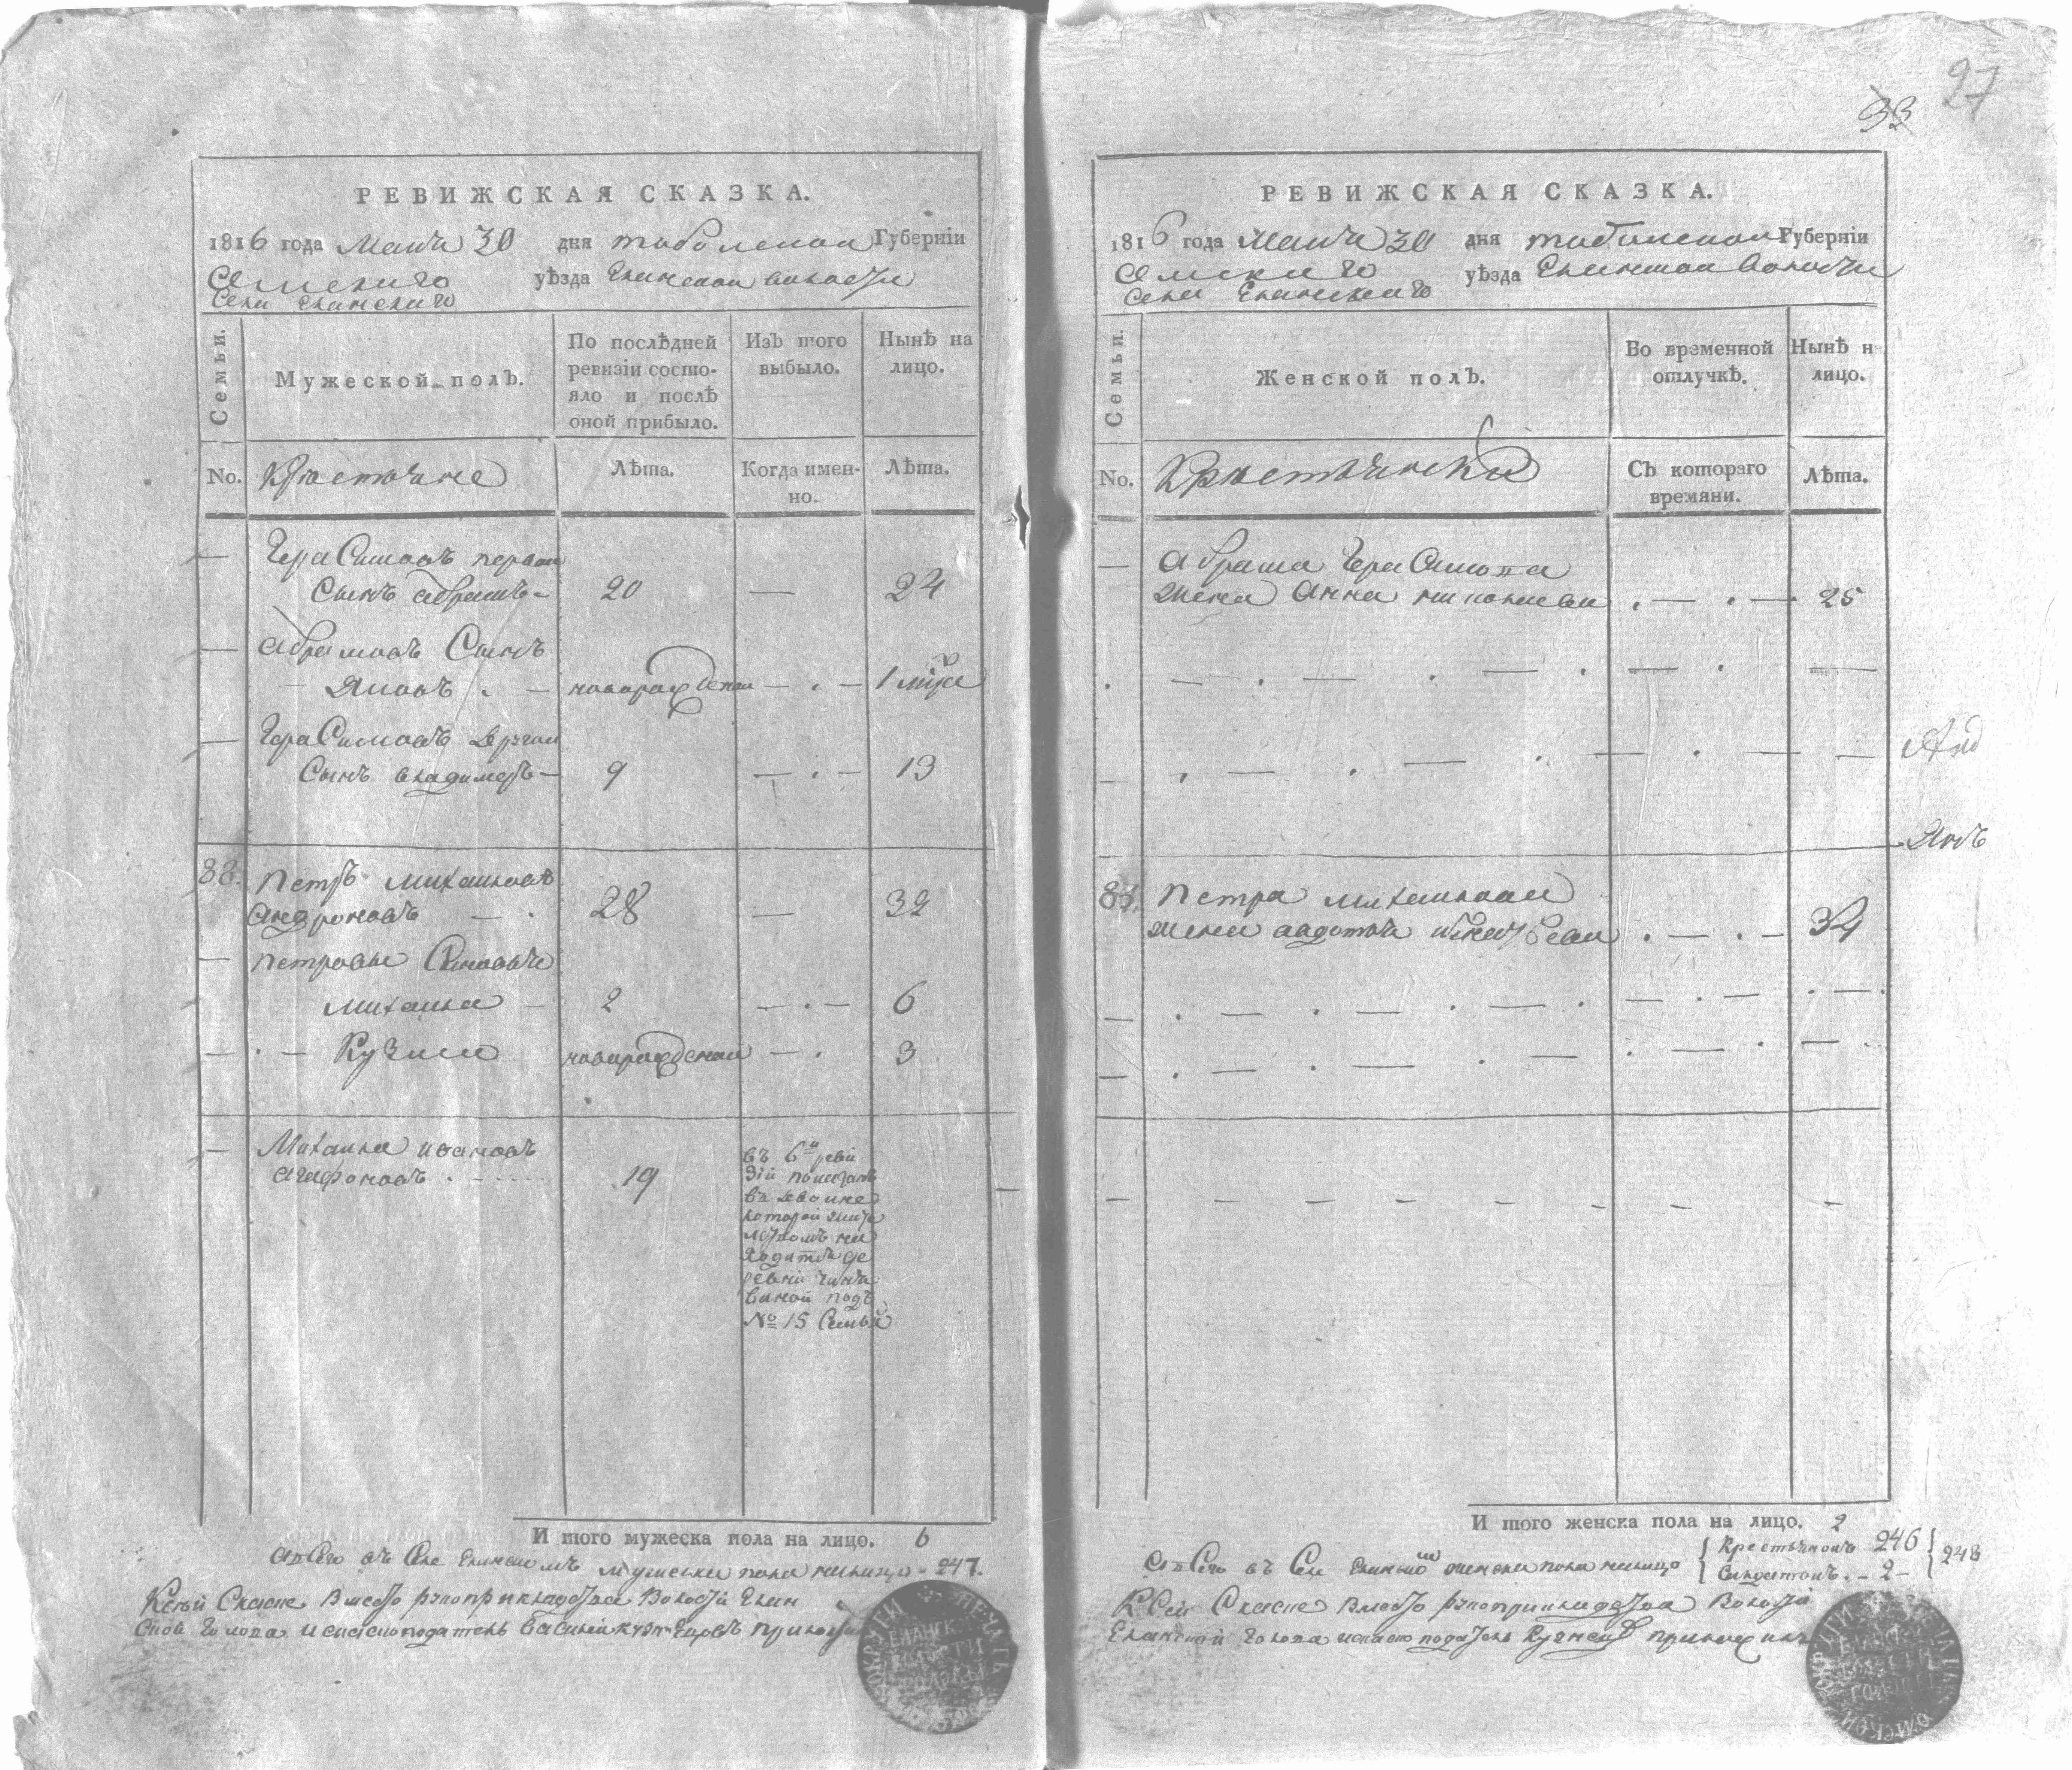 РЕВИЖСКАЯ СКАЗКА.
1816 года Маия 30 дня тобольской Губернiи
Омскаго уѣзда Еланской волости
Села Еланскаго
Семьи.
Мужеской полЪ.
По послѣдней
ревизiи состо-
яло и послѣ
оной прибыло.
ИзЪ того
выбыло.
Нынѣ на
лицо.
No.
Крестьяне
Лѣта.
Когда имен-
но.
Лѣта.
ГераСимовъ первой
Сынъ абрамъ 20 — 24
абрамовъ Сынъ
новорожденой — 1
ГераСимовъ другой
Сынъ владимеръ 9 — 13
88. Петръ михаиловъ
андроновъ — 28 — 32
петровы Сыновья
михаила — 2 — 6
Кузма новорожденой — 3
Михаила ивановъ
агафоновъ 19
въ 6й реви
зiи
которой
ревни
ваной подъ
№ 15 Семьей
И того мужеска пола на лицо. 6
въ Селе Еланскомъ мужеска пола налицо 247.
Ксей Скаске вместо рукоприкладства Волости Елан
ской Голова и скаскоподатель Василей приложил
33 97
РЕВИЖСКАЯ СКАЗКА.
1816 года Маия 30 дня тобольской Губернiи
Омскаго уѣзда Еланской волости
Села Еланскаго
Семьи.
Женской полЪ.
Во временной
отлучкѣ.
Нынѣ н
лицо.
No.
Крестьянски
СЪ котораго
времяни.
Лѣта.
абрама ГераСимова
жена Анна 25
88. Петра михаилова
жена авдотья 34
И того женска пола на лицо. 2
въ Селе женска пола налицо { Крестьянокъ 246 } 248
Салдатокъ. - 2 -
КСей Скаске вместо рукоприкладства Волости
Еланской Голова искаскоподатель приложил